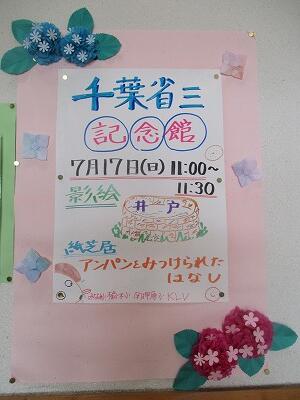 千葉省三
記念館
7月17日(日) 11:00〜
11:30
影絵
井戸
紙芝居
アンパンとみつけられた
はなし
KLV